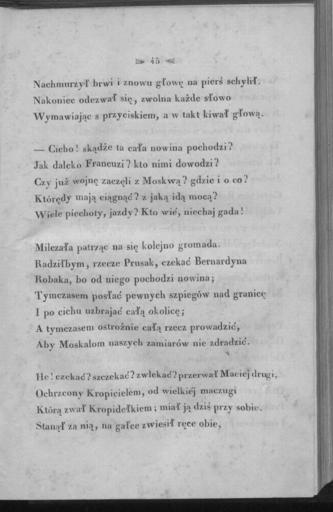 45
Nachmurzył brwi i znowu głowę na pierś schylił.
Nakoniec odezwał się, zwolna każde słowo
Wymawiając s przyciskiem, a w takt kiwał głową.
— Cicho! skądże ta cała nowina pochodzi?
Jak daleko Francuzi? kto nimi dowodzi?
Czy już wojnę zaczęli z Moskwą? gdzie i o co?
Którędy mają ciągnąć? z jaką idą mocą?
Wiele piechoty, jazdy? Kto wié, niechaj gada!
Milczała patrząc na się kolejno gromada.
Radziłbym, rzecze Prusak, czekać Bernardyna
Robaka, bo od niego pochodzi nowina;
Tymczasem posłać pewnych szpiegów nad granicę
I po cichu uzbrajać całą okolicę;
A tymczasem ostrożnie całą rzecz prowadzić,
Aby Moskalom naszych zamiarów nie zdradzić.
He! czekać? szczekać? zwlekać? przerwał Maciej drugi,
Ochrzcony Kropicielem, od wielkiéj maczugi
Którą zwał Kropidełkiem; miał ją dziś przy sobie.
Stanął za nią, na gałce zwiesił ręce obie,